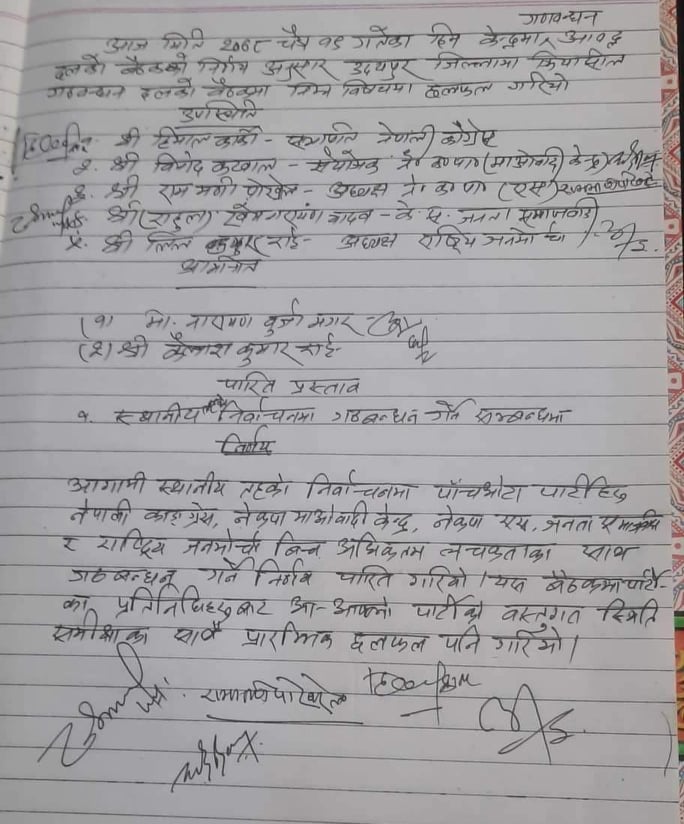 गठबन्धन
आज मिति २०७८ चैत्र १९ गतेका दिन केन्द्रमा आवद्ध
दलको बैठकको निर्णय अनुसार उदयपुर जिल्लामा क्रियाशील
गठबन्धन दलको बैठकमा निम्न विषयमा छलफल गरियो
उपस्थिति
१. श्री हिमाल कार्की - सभापति नेपाली काँग्रेस
२. श्री विनोद कटवाल - संयोजक ने क पा (माओवादी केन्द्र)
३. श्री राम मणी पोखरेल - अध्यक्ष ने क पा (एस)
४. श्री (राहुल) यादव - के. स. जनता समाजवादी
५. श्री राई - अध्यक्ष राष्ट्रिय जनमोर्चा
आमन्त्रित
(१) मा. नारायण वुर्जा मगर -
(२) श्री कैलाश कुमार राई-
पारित प्रस्ताव
१. स्थानीय तहको निर्वाचनमा गठबन्धन गर्ने सम्बन्धमा
निर्णय
आगामी स्थानीय तहको निर्वाचनमा पाँचओटा पार्टीहरु
नेपाली काङग्रेस, नेकपा माओवादी केन्द्र, नेकपा एस, जनता समाजवादी
र राष्ट्रिय जनमोर्चा बिच अधिकतम लचकताका साथ
गठबन्धन गर्ने निर्णय पारित गरियो । यस बैठकमा पार्टी-
का प्रतिनिधिहरुबाट आ-आफ्नो पार्टीको वस्तुगत स्थिति
समीक्षाका साथै प्रारम्भिक छलफल पनि गरियो ।